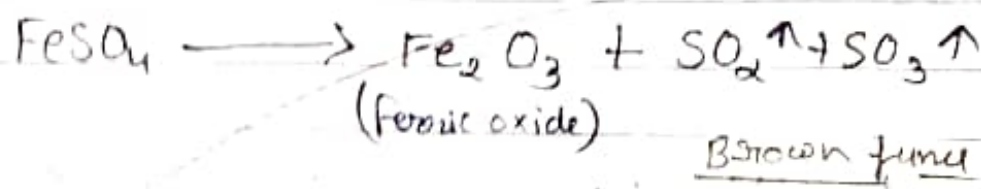 FeSO₄ ⟶ Fe₂O₃ + SO₂↑+SO₃↑
(Ferric oxide)
Brown fume